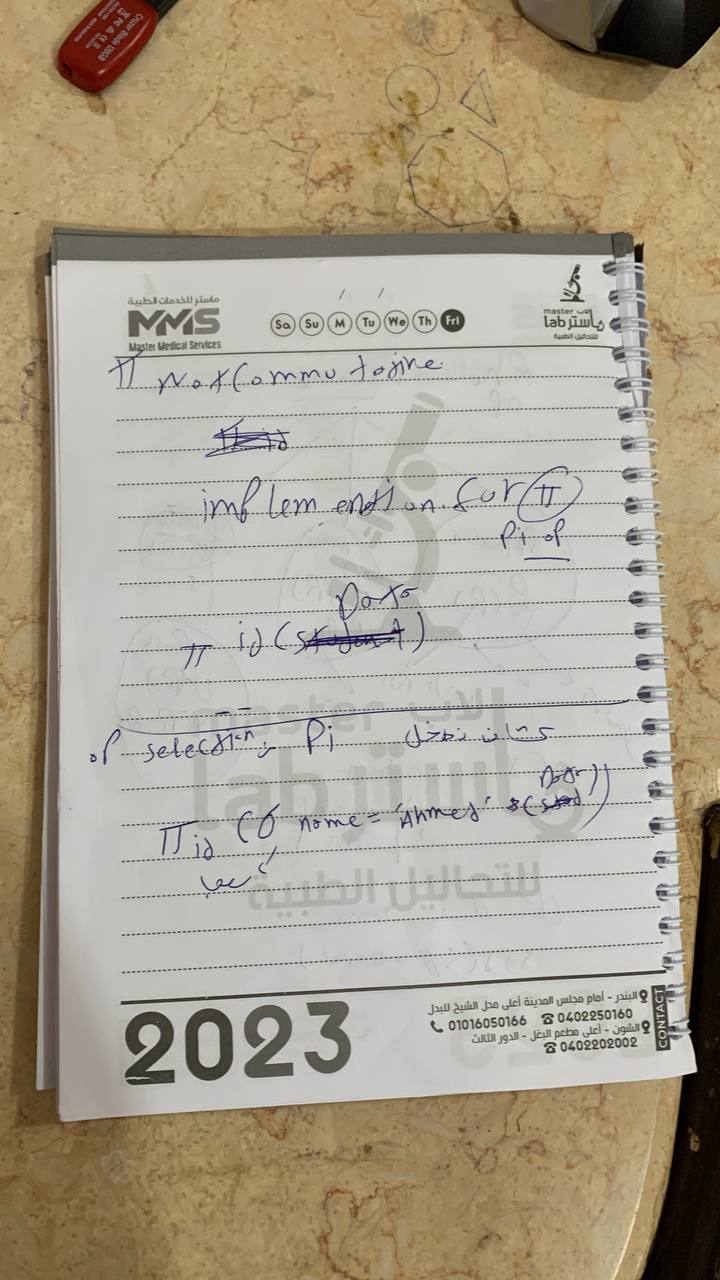 ماستر للخدمات الطبية
MMS
Master Medical Services
Sa Su M Tu We Th Fri
master لاب
lab ماستر
للتحاليل الطبية
π Not Commutative
implementation for π
Pi of
Data
π id (student)
of selection, Pi كتابة
π id (σ name = 'Ahmed' (Data))
master لاب
lab ماستر
للتحاليل الطبية
2023
البندر - أمام مجلس المدينة أعلى محل الشيخ للبدل
01016050166 0402250160
الشون - أعلى مطعم البغل - الدور الثالث
0402202002
CONTACT